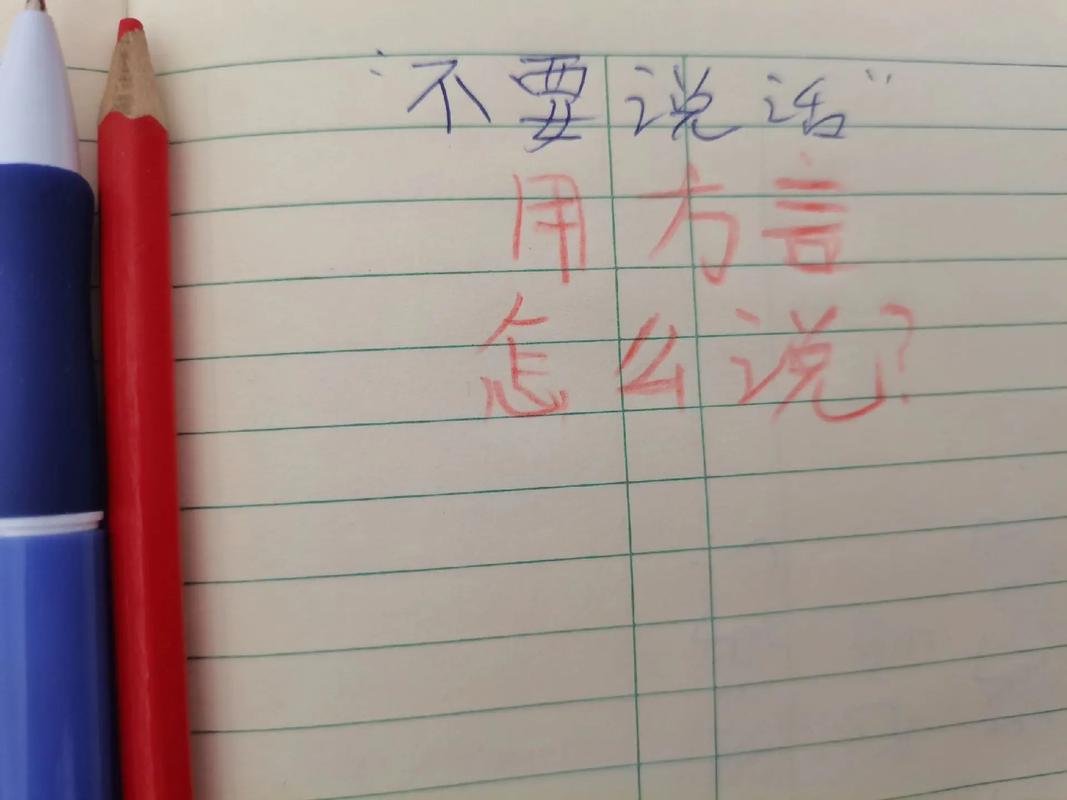 “不要说话”
用方言
怎么说?